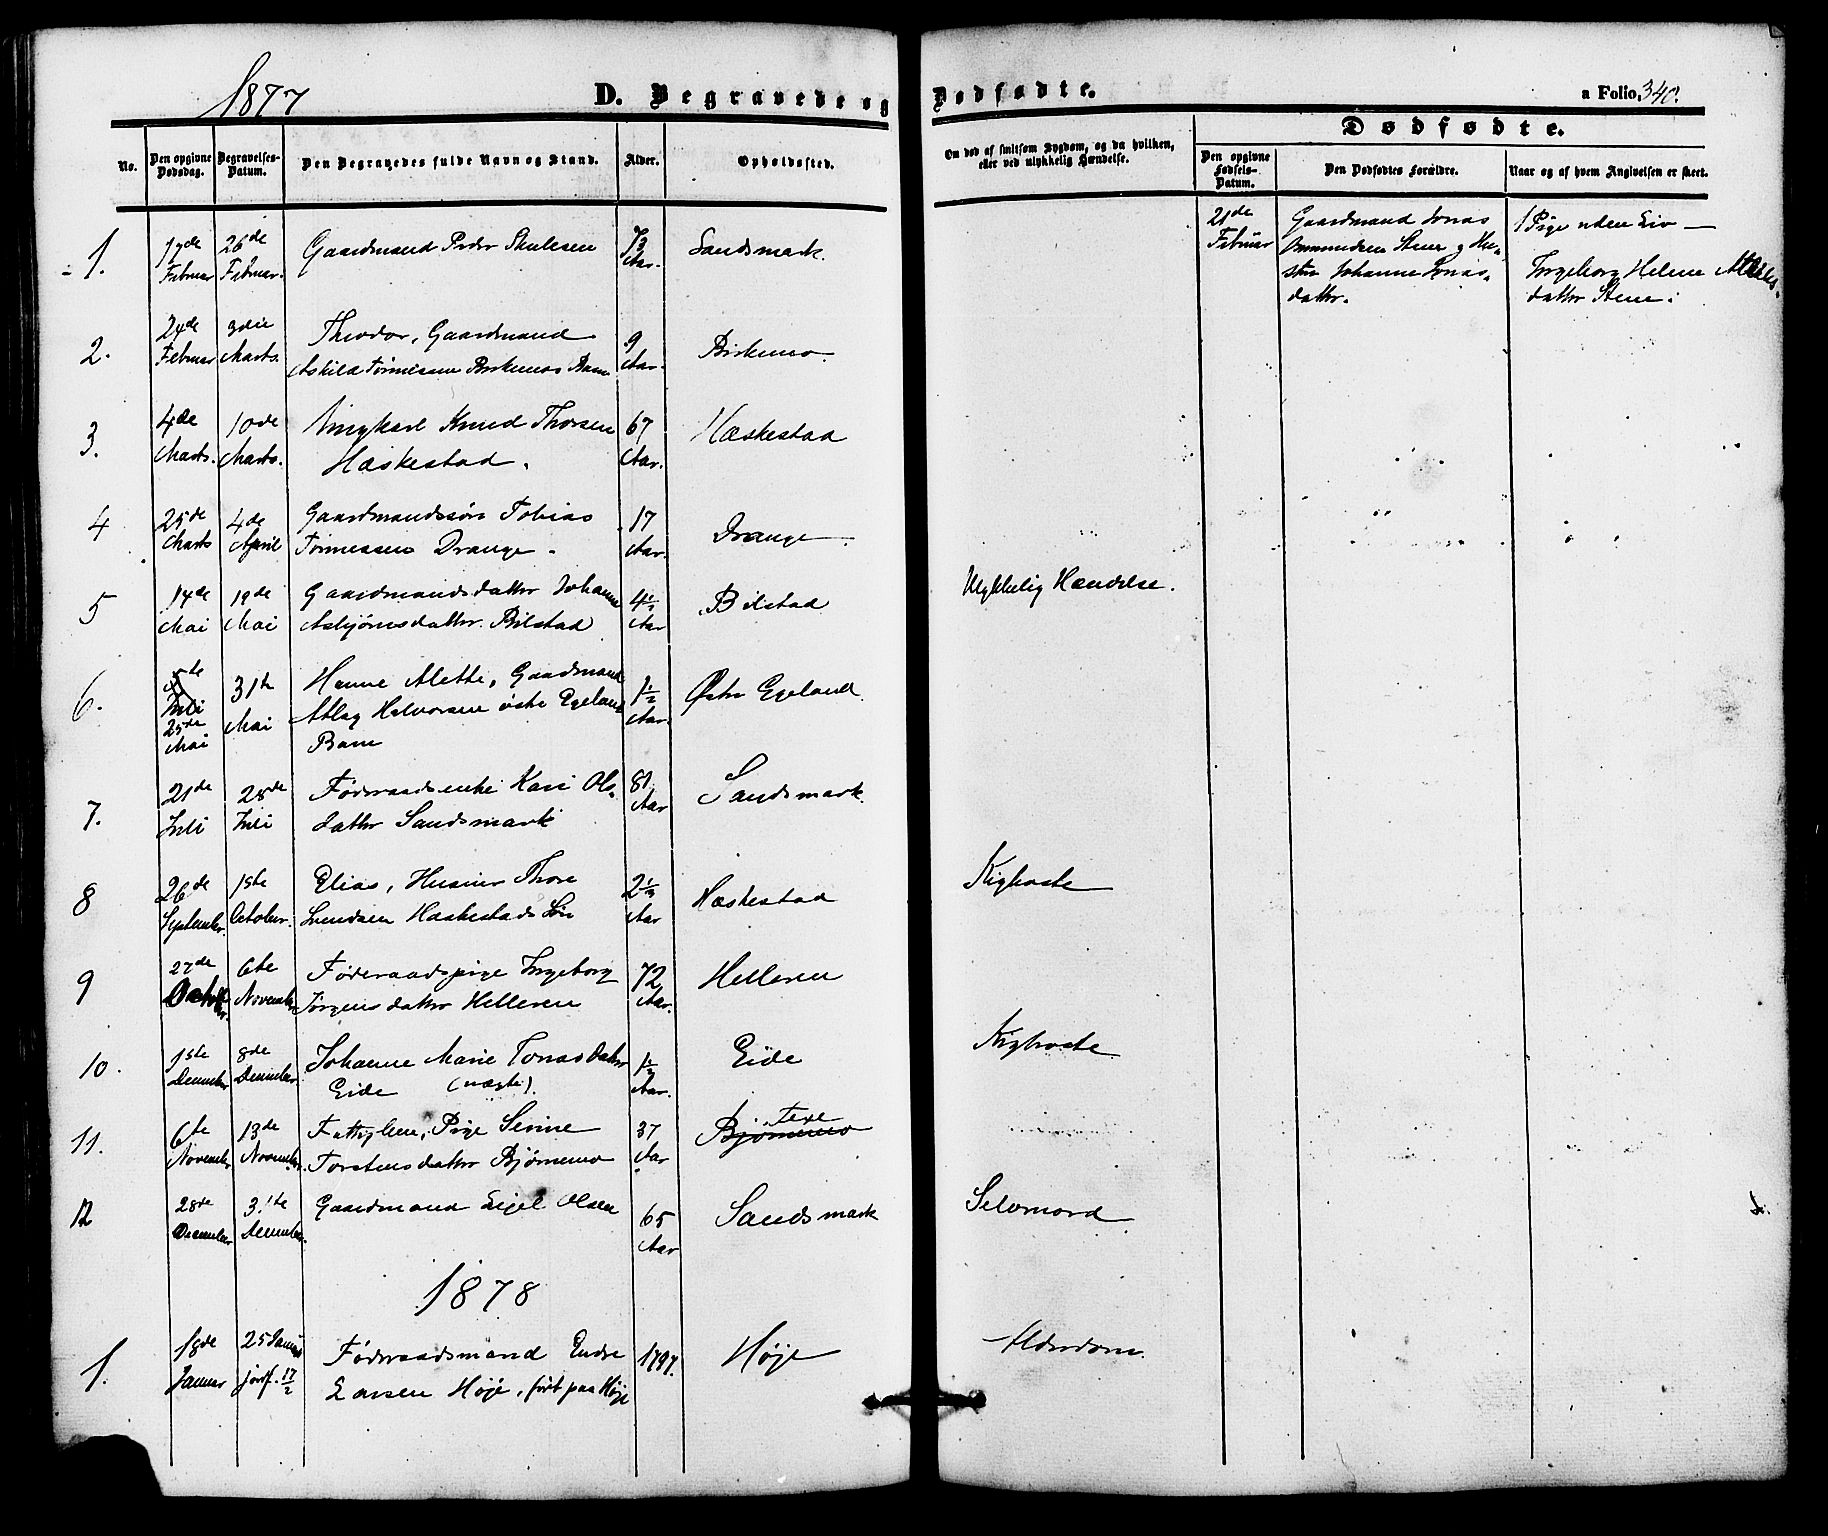 1877
D. Begravede og Dødfødte.
a Folio 340.
No.
Den opgivne Dødsdag.
Begravelses-Datum.
Den Begravedes fulde Navn og Stand.
Alder.
Opholdssted.
Om død af smitsom Sygdom, og da hvilken,
eller ved ulykkelig Hændelse.
Dødfødte.
Den opgivne
Fødsels-
Datum.
Den Dødfødtes Forældre.
Naar og af hvem Angivelsen er skeet.
1. 17de Februar 26de Februar. Gaardmand Peder Skulesen 73 Aar. Sandsmark.
21de Februar
Gaardmand Jonas
Ommundsen Stene og Hu-
stru Johanne Jonas-
datter.
1 Pige uden Liv —
Ingeborg Helene
datter Stene.
2. 24de Februar 3die Marts. Theodor, Gaardmand
Askild Tønnessen Birkemos Barn 9 Aar. Birkemo.
3. 4de Marts. 10de Marts. Ungkarl Knud Thorsen
Hæskestad. 67 Aar. Hæskestad
4 25de Marts 4de April Gaardmandssøn Tobias
Tønnessen Drange. 17 Aar. Drange.
5 14de Mai 19de Mai Gaardmandsdatter Johanne
Asbjørnsdatter Bilstad 4½ Aar Bilstad Ulykkelig Hændelse.
6. 5te Juli 25de Mai 31te Mai Hanne Alette, Gaardmand
Atlag Halvorsen østre Egeland
Barn 1½ Aar. Østre Egeland.
7. 21de Juli 28de Juli Føderaadsenke Kari Ols-
datter Sandsmark 81 Aar Sandsmark.
8 26de September. 1ste October. Elias, Husmand Thore
Svendsen Hæskestads Søn 2½ Aar Hæskestad Kighoste
9 27de October. 6te November Føderaadspige Ingeborg
Jørgensdatter Helleren 72 Aar. Helleren
10. 1ste December 8de December. Johanne Marie Jonasdatter
Eide (uægte). ½ Aar. Eide Kighoste
11. 6te November 13de November. Fattiglem, Pige Serine
Torstensdatter Bjørnemo 37 Aar Bjørnemo
12 28de December 31te December. Gaardmand Eigel Olsen 65 Aar Sandsmark Selvmord.
1878
1. 18de Januar 25 Januar jordf. 17/2 Føderaadsmand Endre
Larsen Høje, født paa Høje 1797. Høje Alderdom.